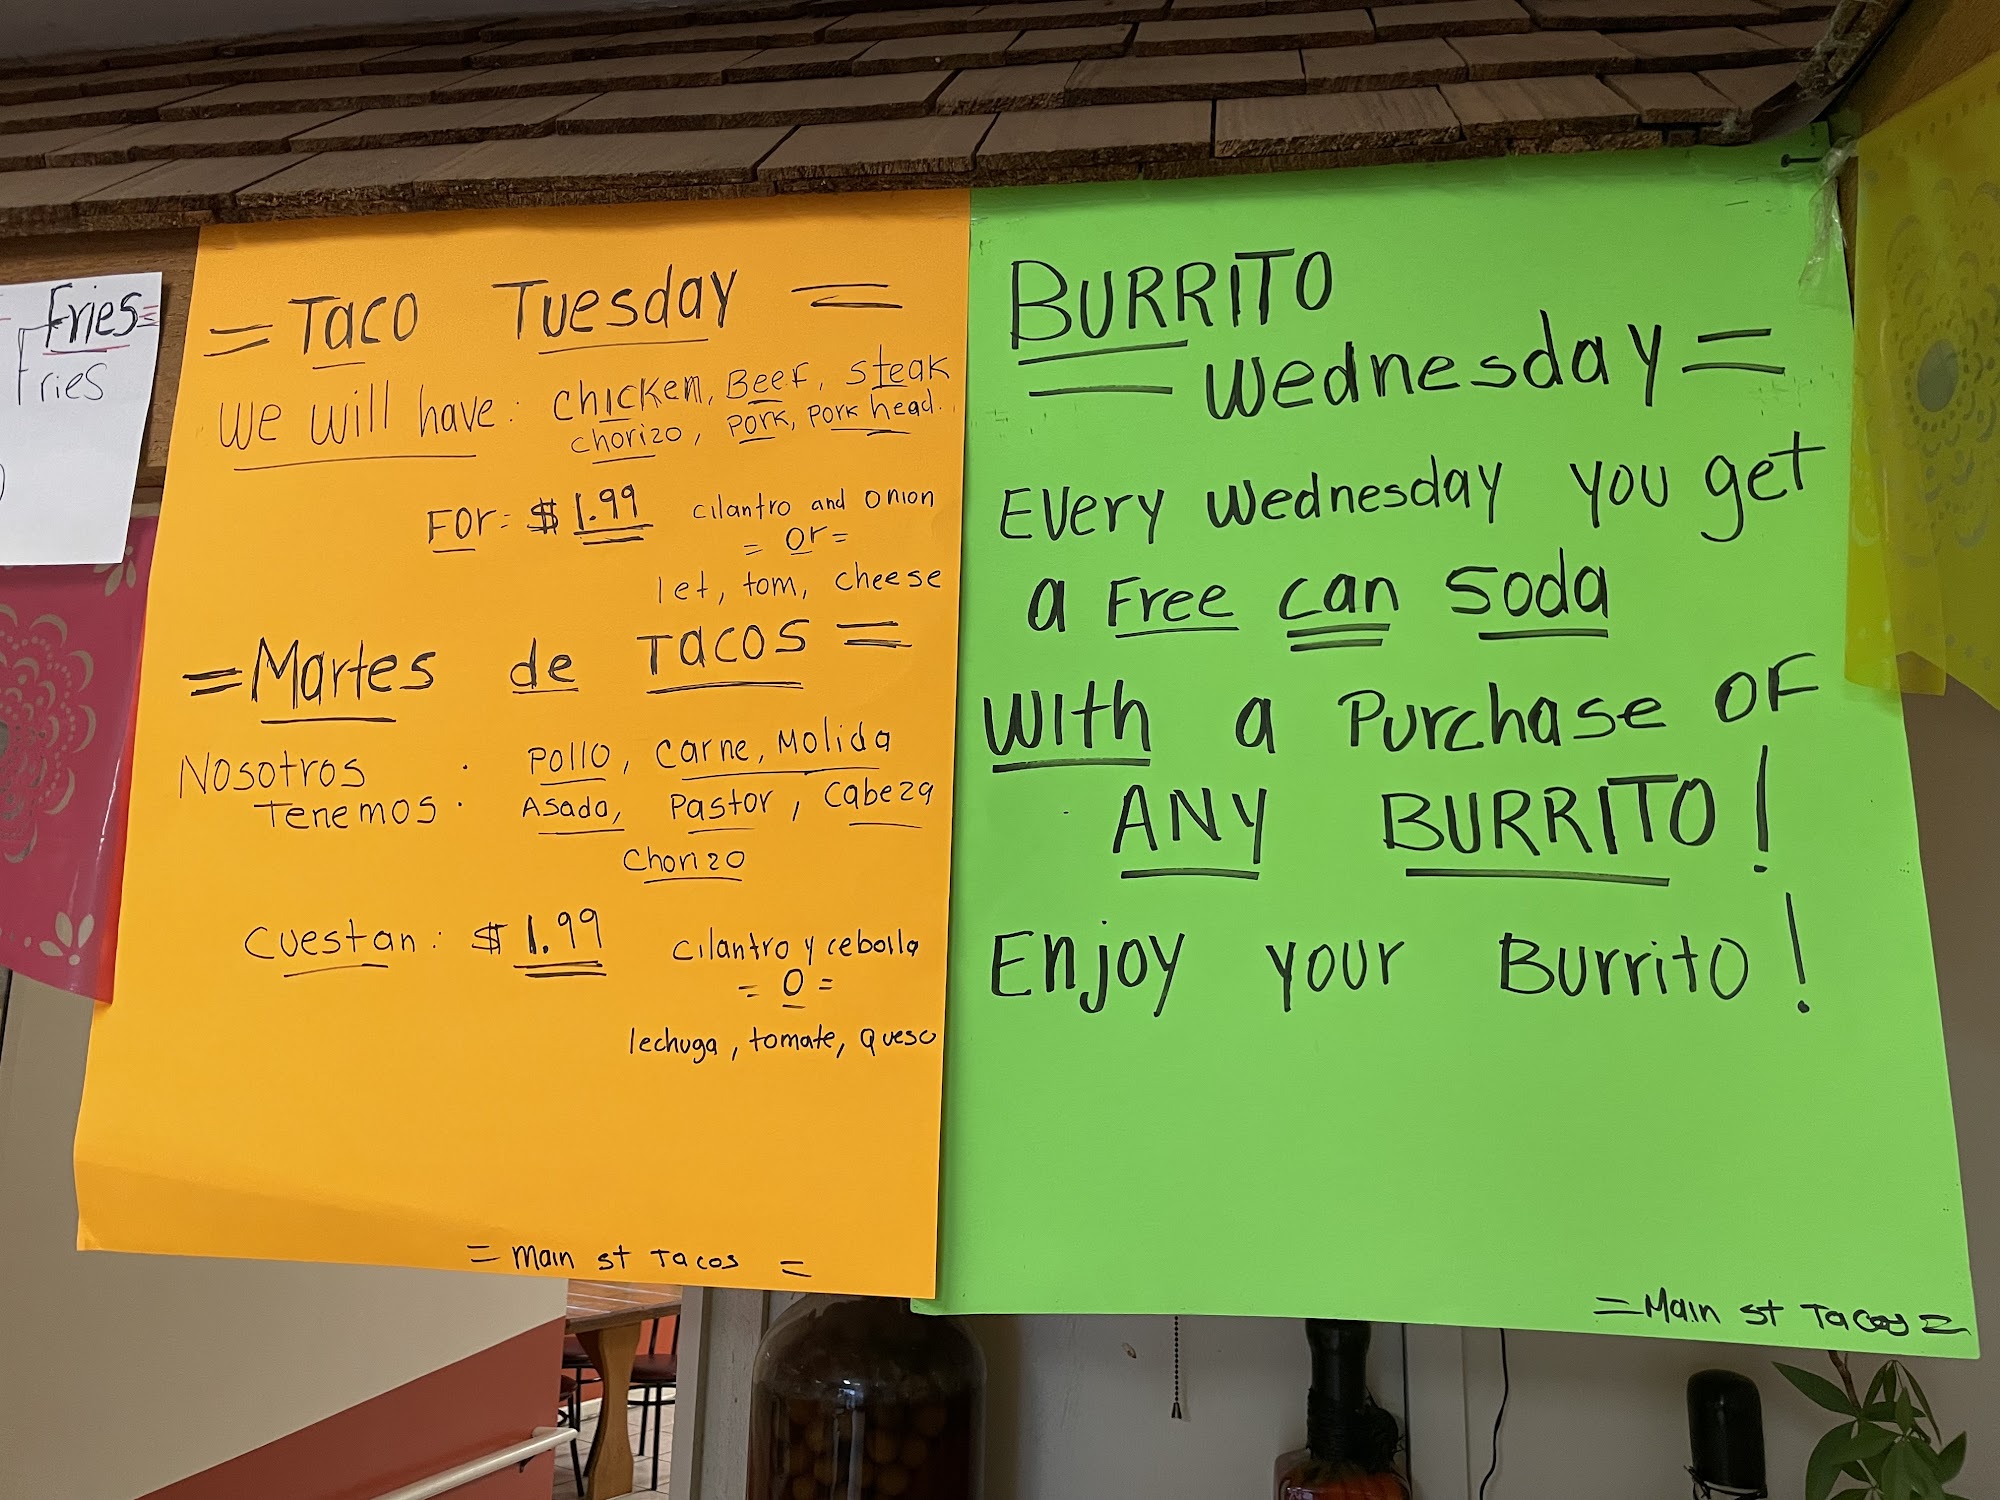 Fries
Fries
= Taco Tuesday =
We will have: Chicken, Beef, steak
Chorizo, Pork, Pork head.
For= $1.99 cilantro and onion
= or =
let, tom, cheese
= Martes de Tacos =
Nosotros : Pollo, Carne, Molida
Tenemos : Asada, Pastor, Cabeza
Chorizo
Cuestan: $1.99 cilantro y cebolla
= o =
lechuga, tomate, queso
= Main st Tacos =
BURRITO
= Wednesday =
Every Wednesday you get
a Free can soda
With a Purchase of
ANY BURRITO!
Enjoy your Burrito!
= Main st Tacos =